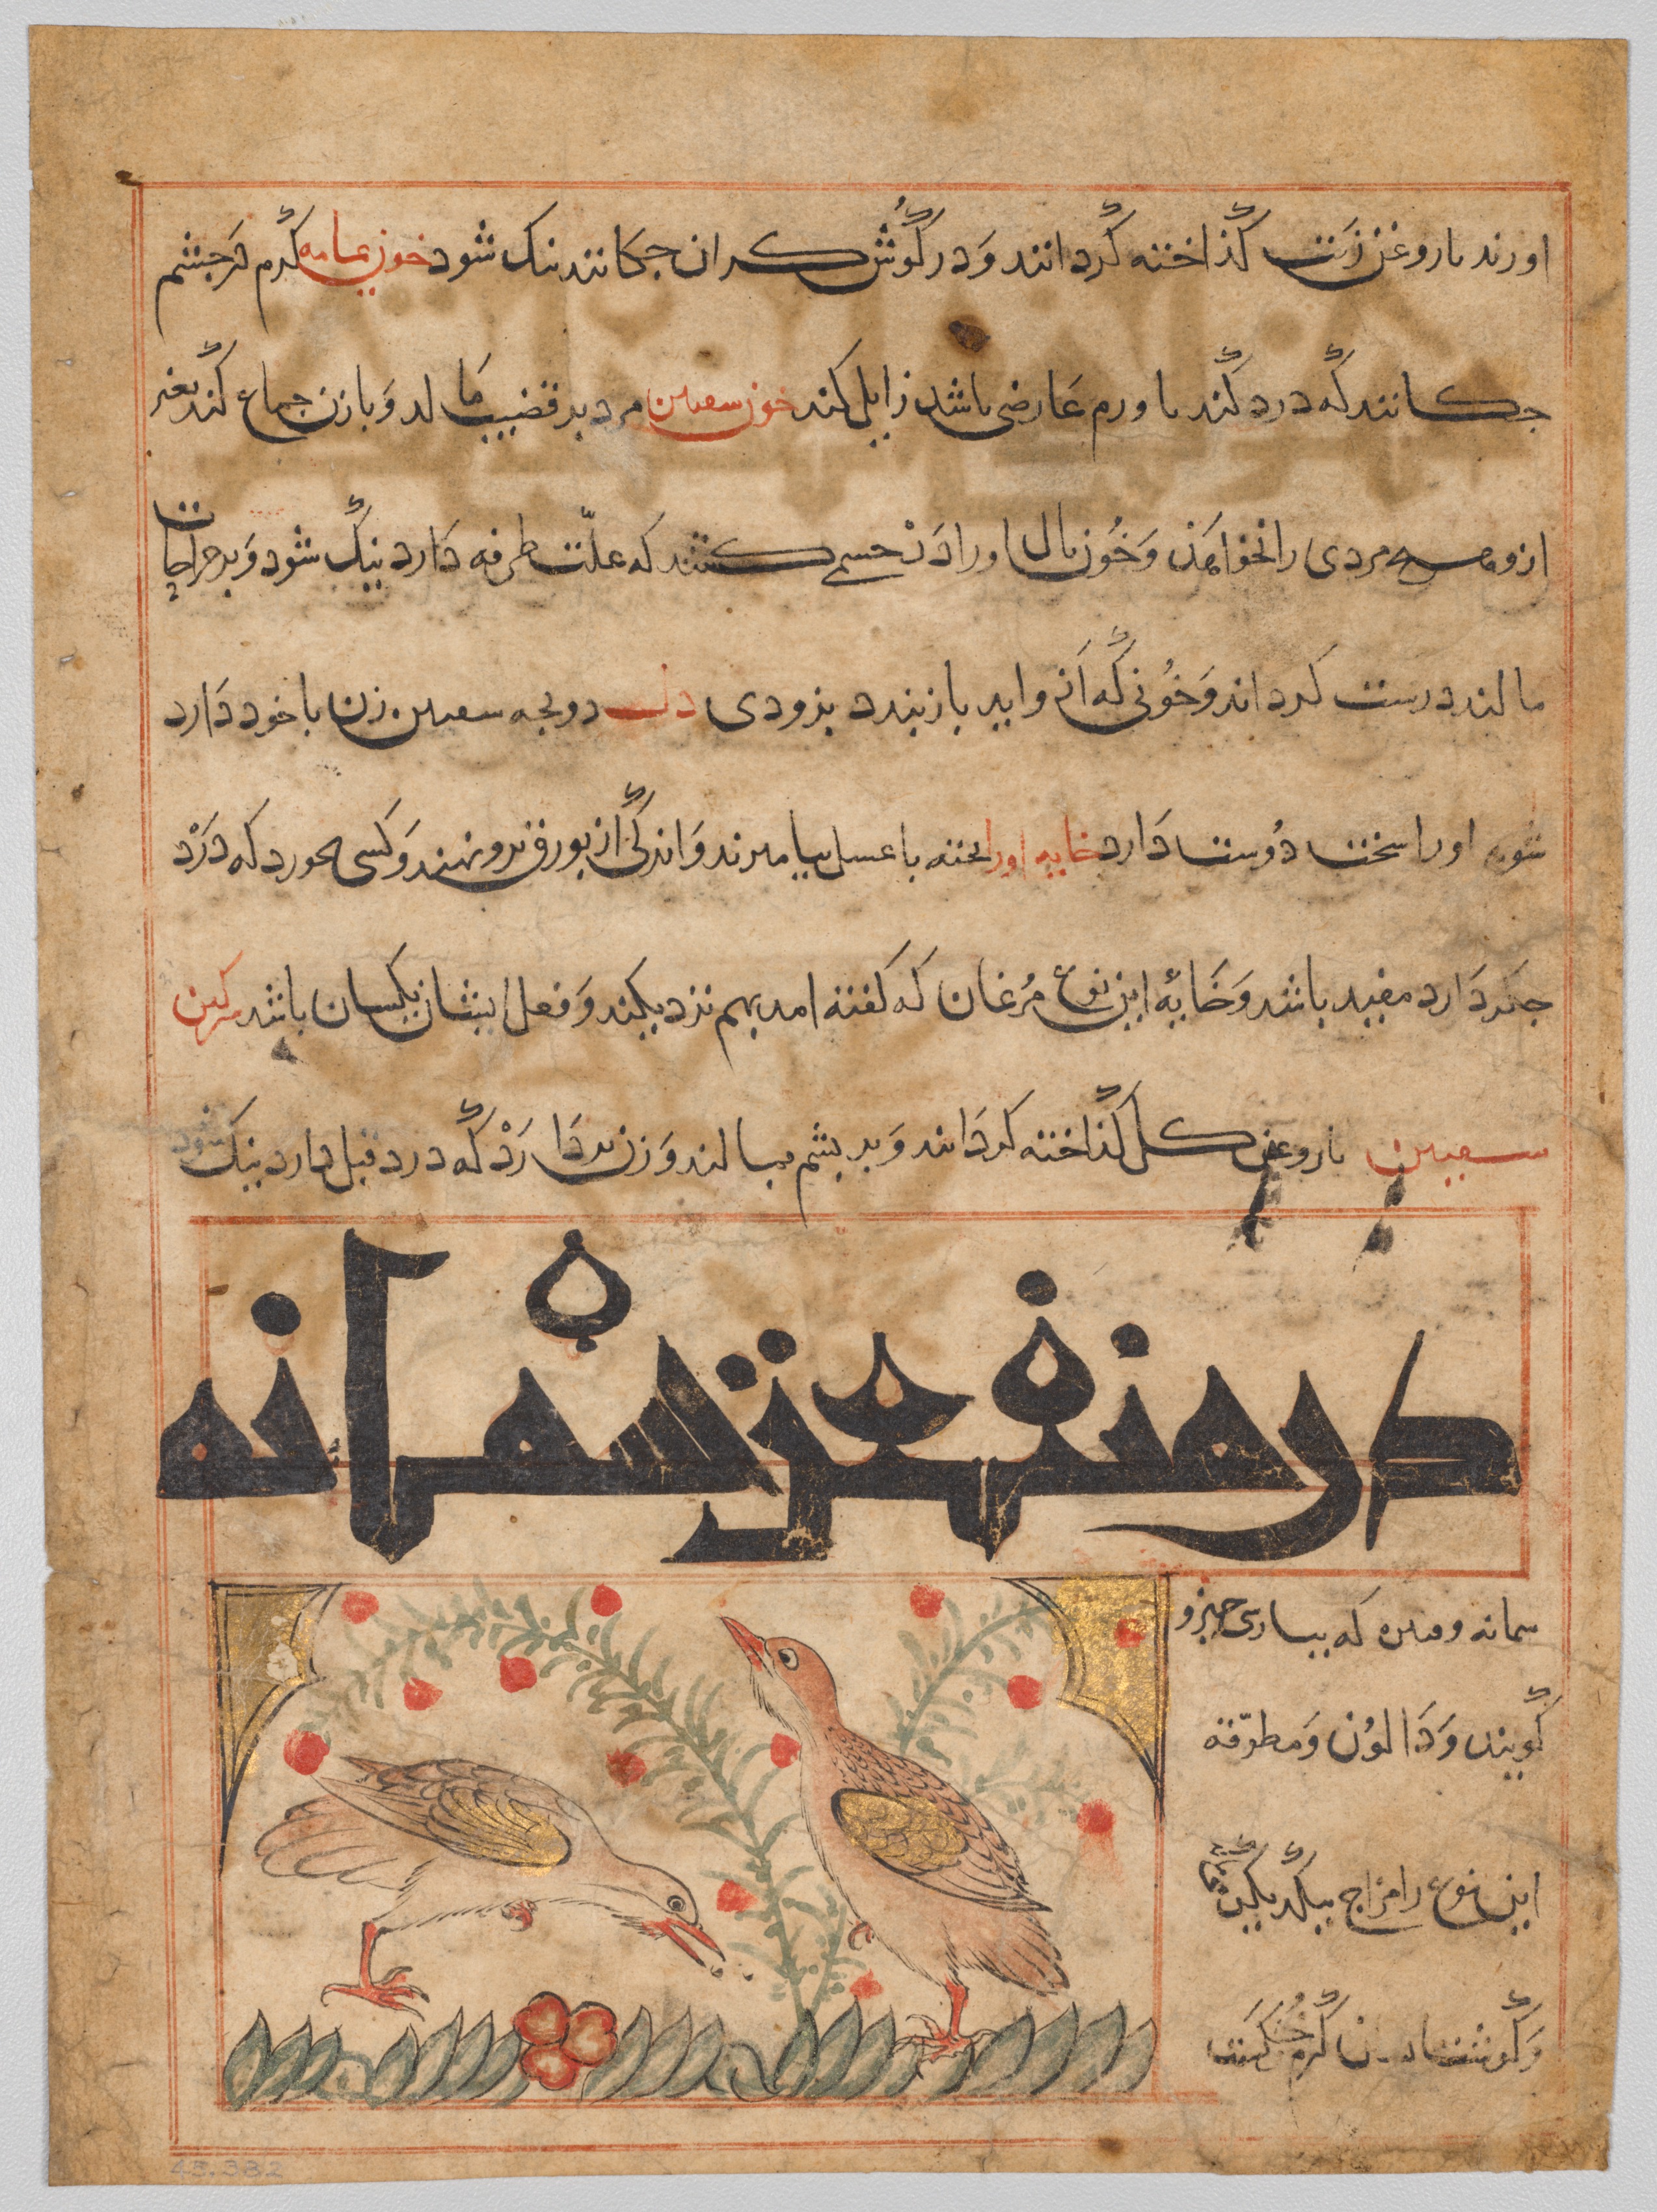 اورند با روغن زیت گذاخته گردانند وَدر گوُش کران چکانند نیک شود خون حمامه گرم در چشم
چکانند گه درد کند با ورم عَارضی باشد زایل کند خون سفنین مرد بر قضیب مَالد وَبا زن جماع کند بغیر
ازو هیچ مردی را نخواهَذ وَخوُن بال اورا دَرْ چشمی کشند که علّت طرفه دَارد نیک شود وَبر جراحات
مالند درست کرداند وَخوُنی گه اَزو اید باز بندد بزودی دو بچه سفنین زن با خود دَارد
شوی اورا سخت دوُست دَارد خایه اورا پخته با عسل بیامیزند وَاندکی از بوره فرو نهند وَکسی بخورد که دَرْد
جگر دَارد مفید باشد وَخَایه این نوع مُرغان که گفته امد بهم نزدیکند وَفعل ایشان یکسان باشد سرکین
سفنین با روغن کل گذاخته کردَانند وَبر پشم میالند وَزن بردَارَدْ گه درد قبل دارد نیک شود
در منفعت سمانه
سمانه و که بپارسی و
گویند وَدَالوُن وَمطوّقه
این نوع را مزاج بیکدیگر
وَگوشت گرم خُ
43.382